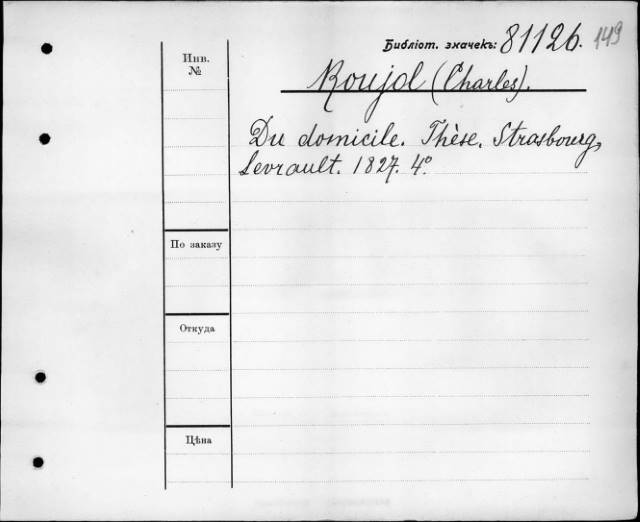 Библіот. значекъ: 81126. 149
Инв.
№
Roujol (Charles).
Du domicile. Thèse. Strasbourg,
Levrault. 1827. 4°.
По заказу
Откуда
Цѣна